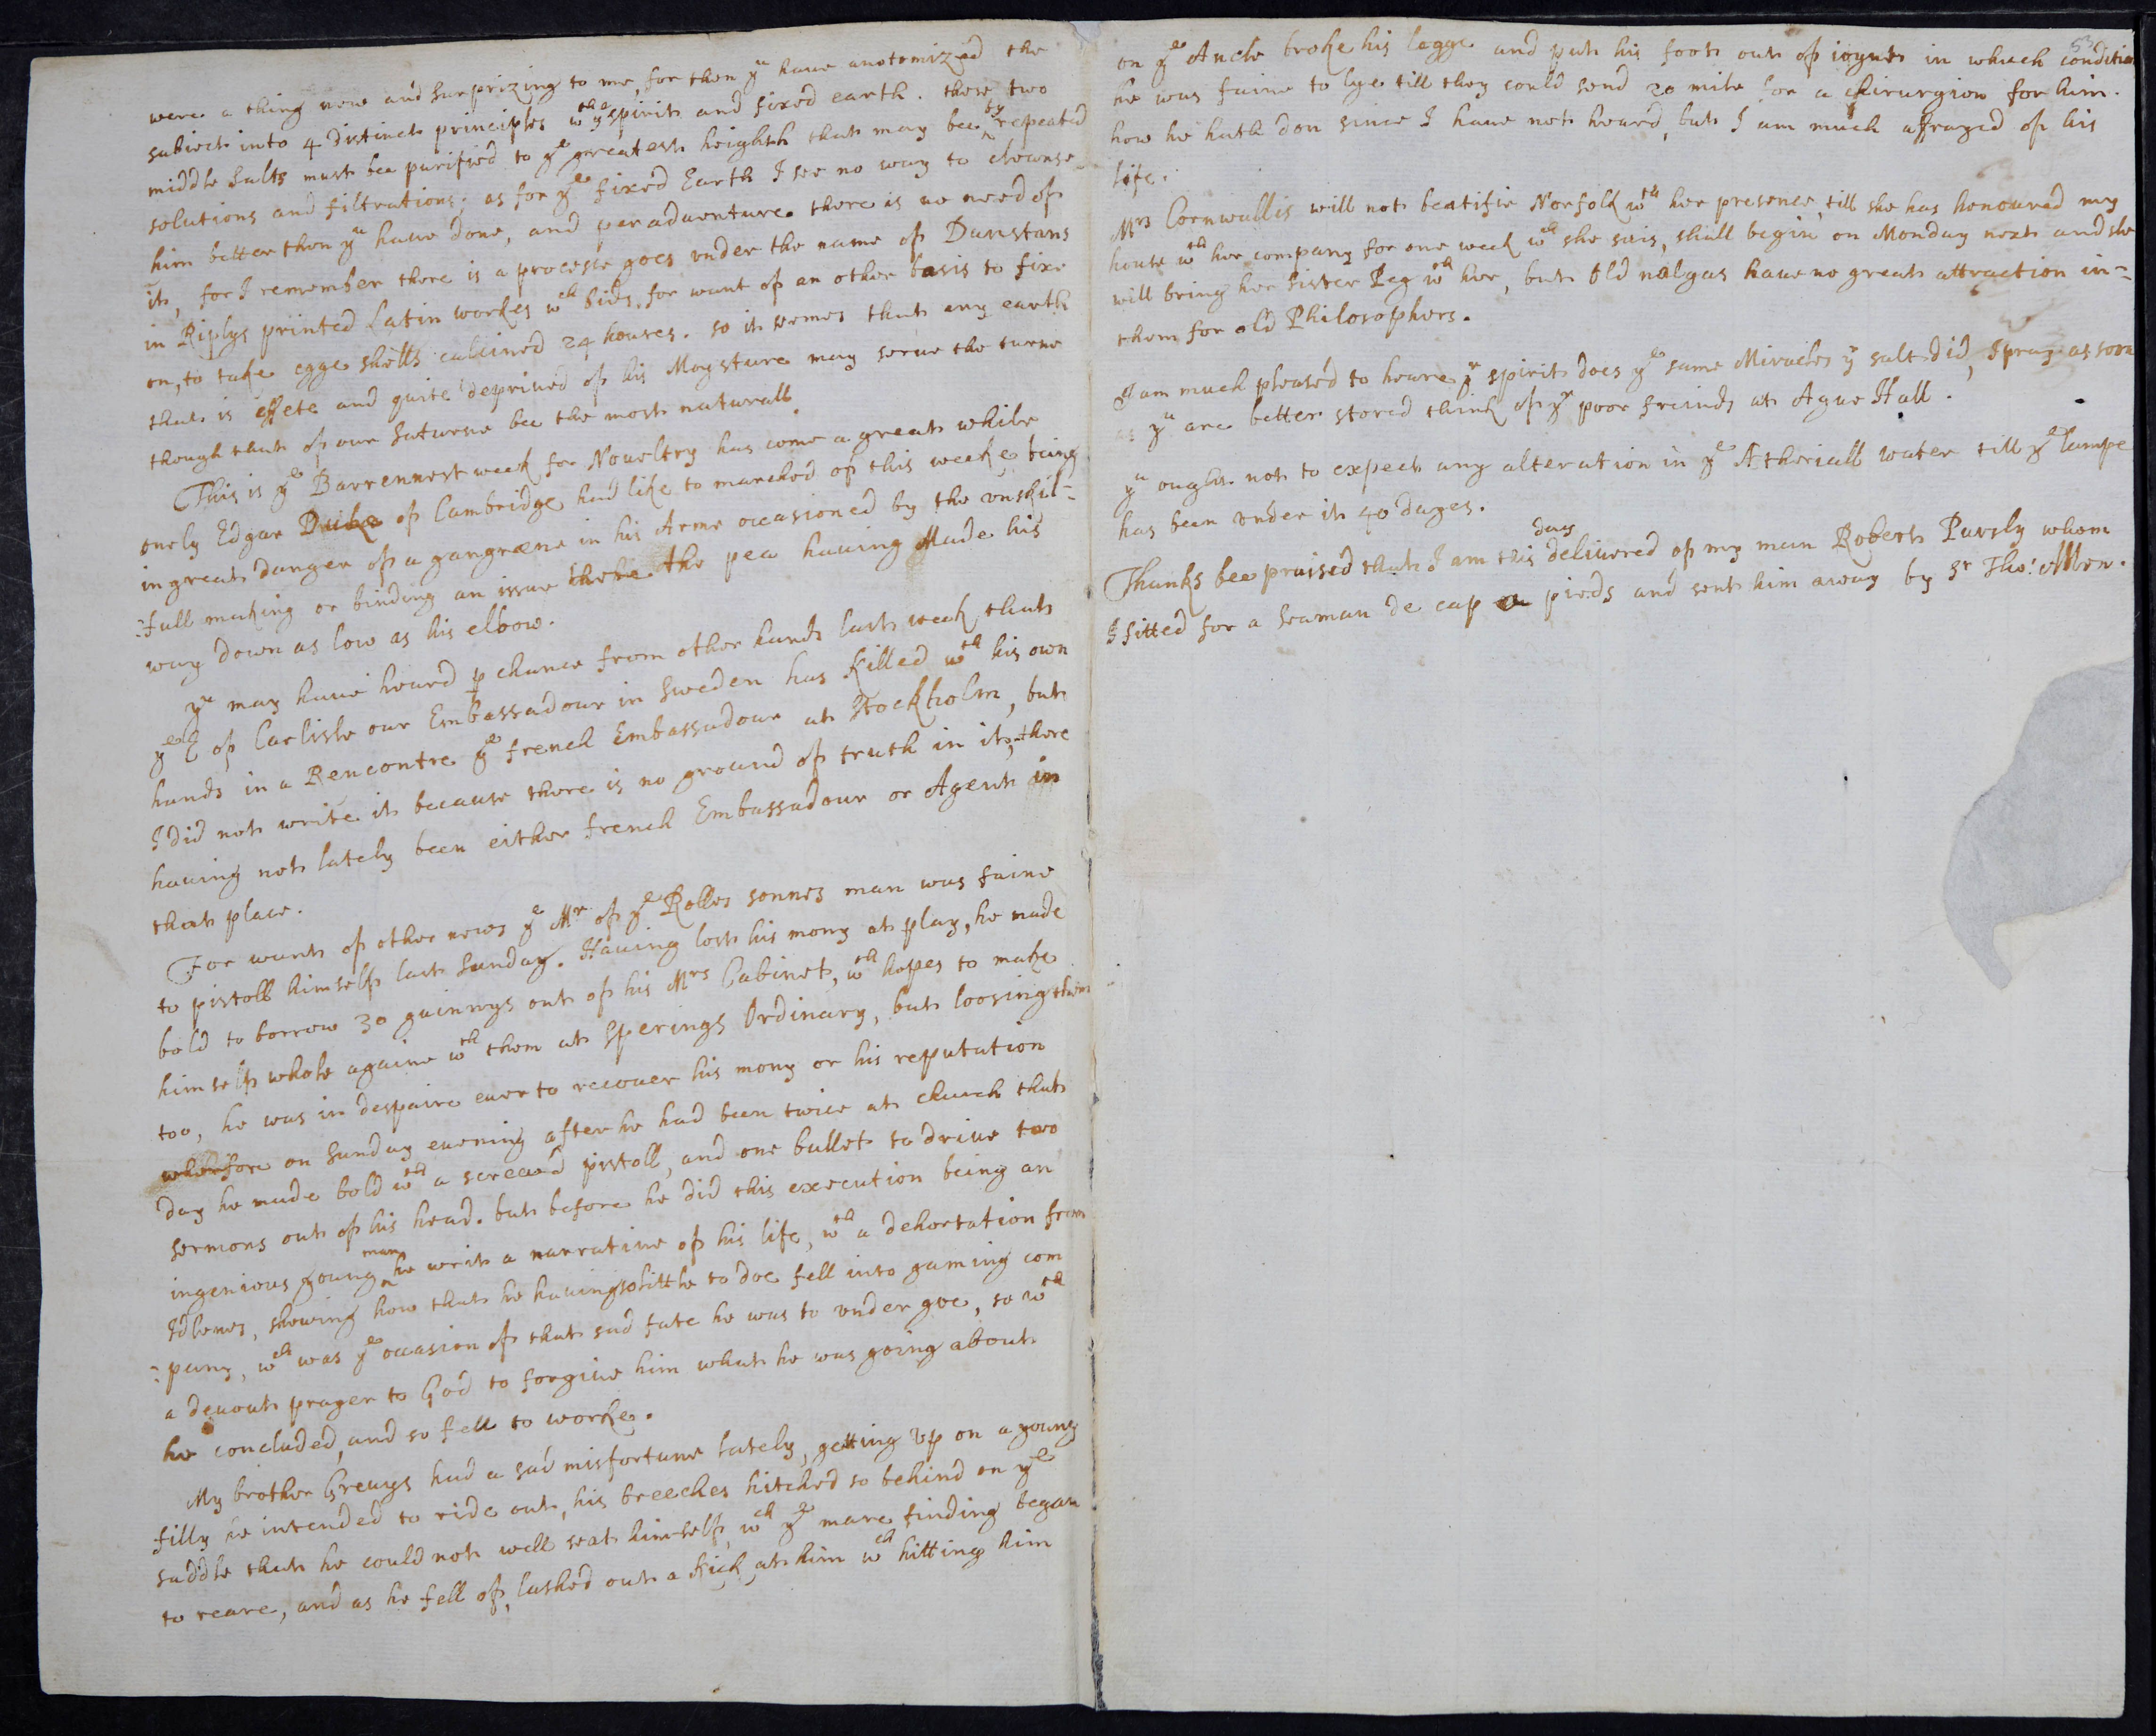 were a thing new and surprizing to me, for then yu have anatomized the
subiect into 4 distinct principles wth ye spirit and fixed earth. these two
middle salts must bee purified to ye greatest heighth that may bee by repeated
solutions and filtrations; as for ye fixed Earth I see no way to cleanse
him better then yu have done, and peradventure there is no need of
it, for I remember there is a processe goes vnder the name of Dunstans
in Riplys printed Latin workes wch bids, for want of an other basis to fixe
on, to take egge shells calcined 24 houres. so it seemes that any earth
that is effete and quite deprived of his Moysture may serve the turne
though that of our saturne bee the most naturall.
This is ye Barrennest week for Noveltry has come a great while
onely Edgar Duke of Cambridge had like to marched of this weeke being
in great danger of a gangræne in his Arme occasioned by the vnskil=
:full making or binding an issue there the pea having Made his
way down as low as his elbow.
yu may have heard p chance from other hands last week that
ye E of Carlisle our Embassadour in Sweden has killed wth his own
hands in a Rencontre ye french Embassadour at Stockholm, but
I did not write it because there is no ground of truth in it, there
having not lately been either french Embassadour or Agent in
that place.
For want of other news ye Mr of ye Rolles sonnes man was faine
to pistoll himself last Sunday. Having lost his mony at play, he made
bold to borrow 30 guinnys out of his Mrs Cabinet, wth hopes to make
himself whole againe wth them at Sperings Ordinary, but loosing them
too, he was in despaire ever to recover his mony or his reputation
wherfore on Sunday evening after he had been twice at church that
day he made bold wth a screwd pistoll, and one bullet to drive two
sermons out of his head. but before he did this execution being an
ingenious young man he writ a narrative of his life, wth a dehortation from
Idlenes, shewing how that he having so little to doe fell into gaming com
:pany, wch was ye occasion of that sad fate he was to vndergoe, so wth
a devout prayer to God to forgive him what he was going about
he concluded, and so fell to worke.
My brother Grevys had a sad misfortune lately, getting vp on a young
filly he intended to ride out, his breeches hitched so behind on ye
saddle that he could not well seat himself, wch ye mare finding began
to reare, and as he fell of, lashed out a kick at him wch hitting him
53
on ye Ancle broke his legge and put his foot out of ioynt in which condition
he was faine to lye till they could send 20 mile for a chirurgion for him.
how he hath don since I have not heard, but I am much affrayed of his
life.
Mrs Cornwallis will not beatifie Norfolk wth her presence, till she has honoured my
house wth her company for one week wch she sais, shall begin on Monday next and she
will bring her sister Peg wth her, but old nalgas have no great attraction in=
them for old Philosophers.
I am much pleased to heare yr spirit does ye same Miracles yr salt did, I pray as soon
as yu are better stored think of yr poor freinds at Ague Hall.
yu ought not to expect any alteration in ye Ætheriall water till ye lampe
has been vnder it 40 dayes.
Thanks bee praised that I am this day delivered of my man Robert Pursly whom
I fitted for a seaman de cap a pieds and sent him away by Sr Tho: Allen.